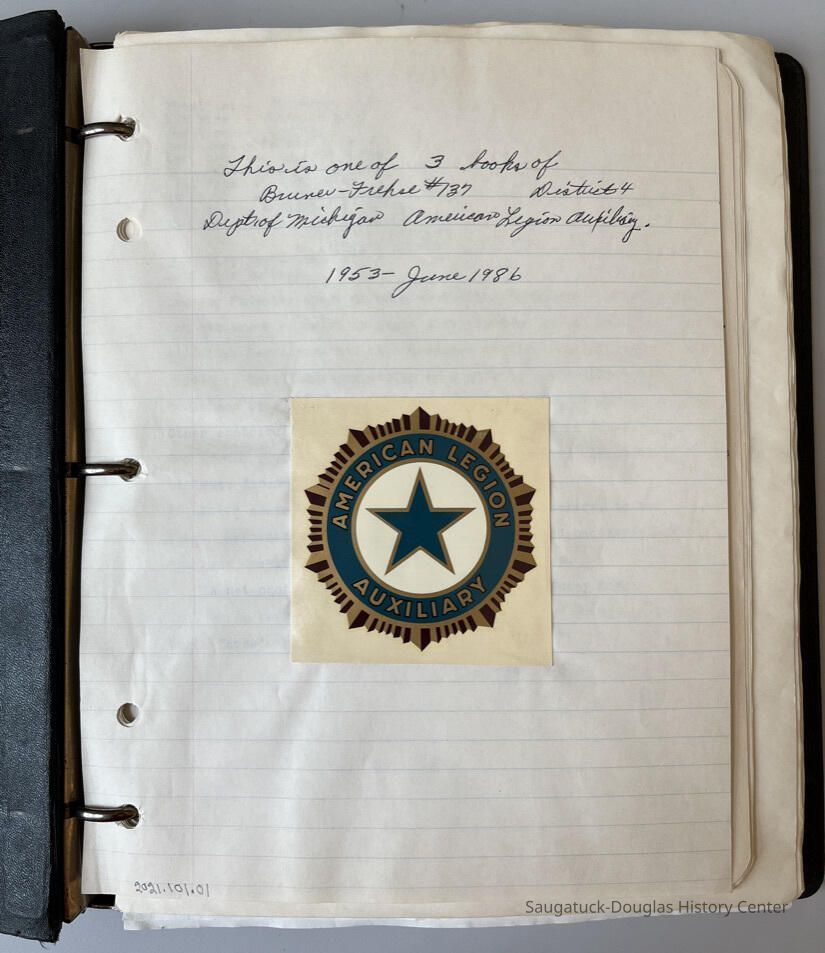 This is one of 3 books of
Bruner-Frehse #137 District 4
Dept. of Michigan American Legion Auxiliary.
1953 - June 1986
AMERICAN LEGION
AUXILIARY
2021.101.01
Saugatuck-Douglas History Center